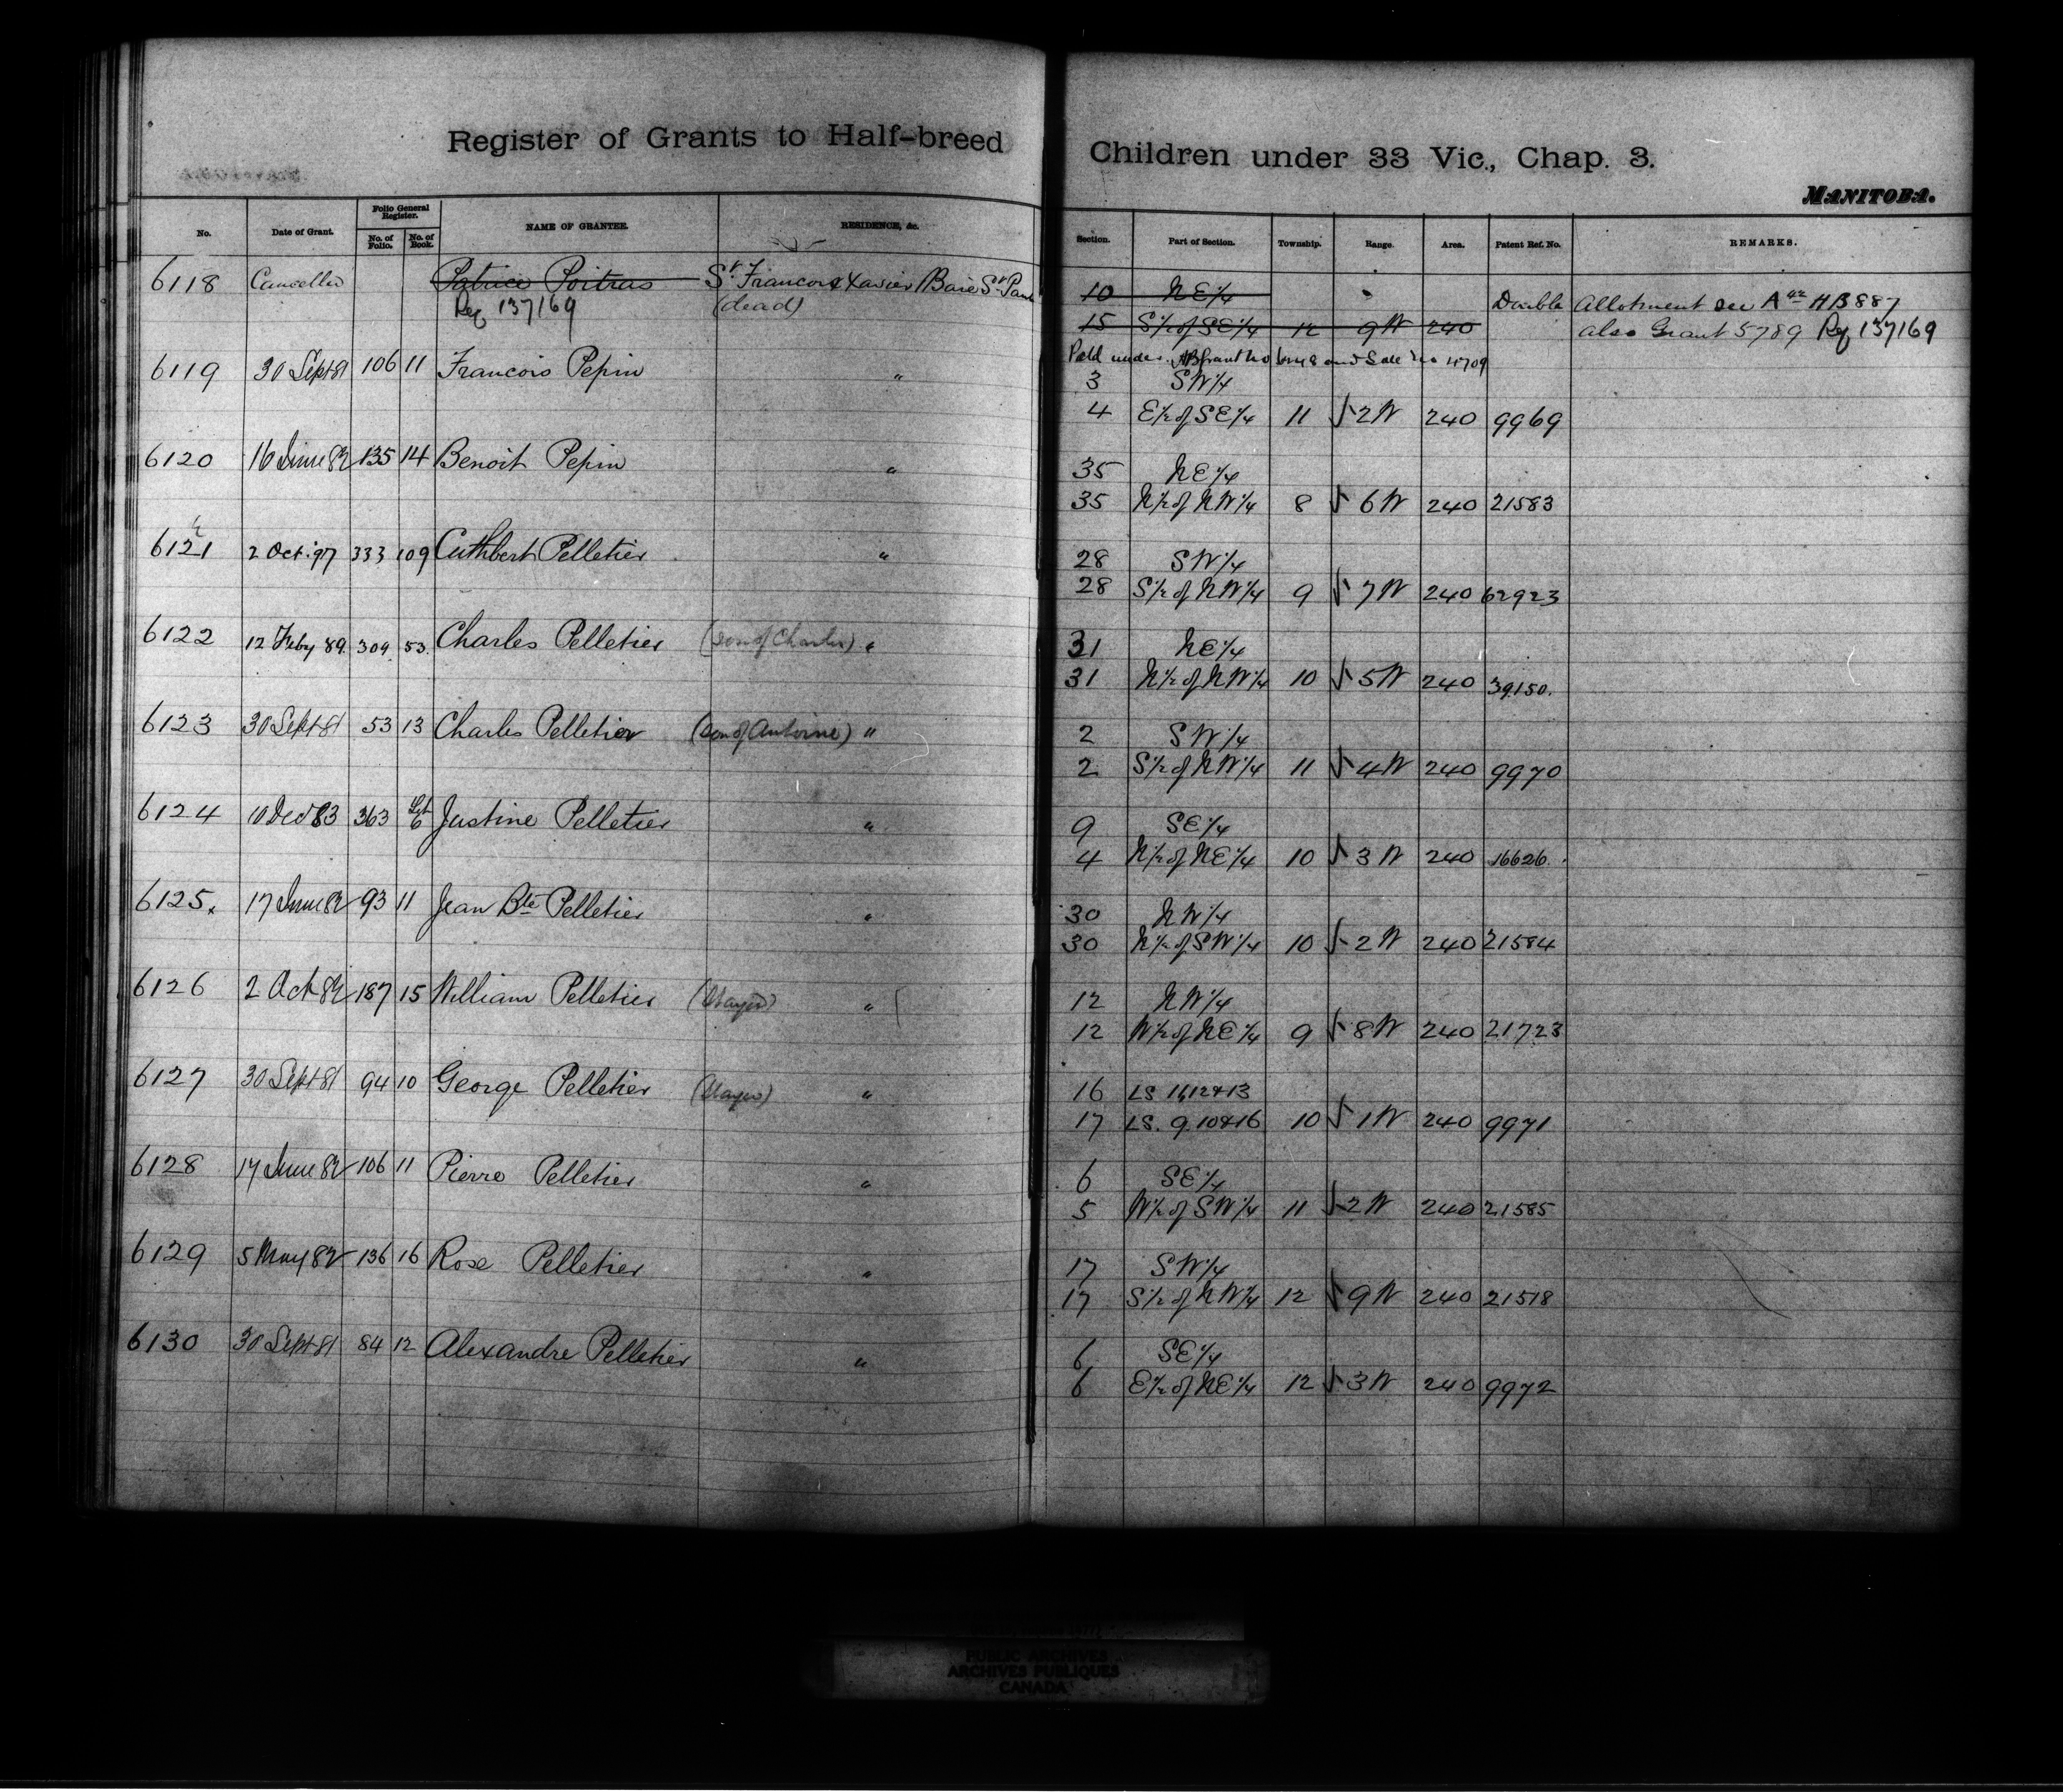 Register of Grants to Half-breed Children under 33 Vic., Chap. 3.
MANITOBA.
No. Date of Grant. Folio General Register. No. of Folio. No. of Book. NAME OF GRANTEE. RESIDENCE, &c. Section. Part of Section. Township. Range. Area. Patent Ref. No. REMARKS.
6118 Cancelled Patrice Poitras St Francois Xavier / Baie St Paul 10 NE 1/4 Double Allotment see HB 887
Ref 137169 (dead) 15 S 1/2 of SE 1/4 12 9 W 240 also Grant 5789 Ref 137169
and Sale no
6119 30 Sept 81 106 11 Francois Pepin " 3 SW 1/4
4 E 1/2 of SE 1/4 11 √ 2 W 240 9969
6120 16 June 82 135 14 Benoit Pepin " 35 NE 1/4
35 N 1/2 of NW 1/4 8 √ 6 W 240 21583
6121 2 Oct. 97 333 109 Cuthbert Pelletier " 28 SW 1/4
28 S 1/2 of NW 1/4 9 √ 7 W 240 62923
6122 12 Feby 89. 309 53. Charles Pelletier (son of Charles) " 31 NE 1/4
31 N 1/2 of NW 1/4 10 √ 5 W 240 39150.
6123 30 Sept 81 53 13 Charles Pelletier (son of Antoine) " 2 SW 1/4
2 S 1/2 of NW 1/4 11 √ 4 W 240 9970
6124 10 Dec 83 363 6 Justine Pelletier " 9 SE 1/4
4 N 1/2 of NE 1/4 10 √ 3 W 240 16626.
6125. 17 June 82 93 11 Jean Bte Pelletier " 30 NW 1/4
30 N 1/2 of SW 1/4 10 √ 2 W 240 21584
6126 2 Oct 82 187 15 William Pelletier " 12 NW 1/4
12 W 1/2 of NE 1/4 9 √ 8 W 240 21723
6127 30 Sept 81 94 10 George Pelletier " 16 LS 11, 12 & 13
17 LS. 9. 10 & 16 10 √ 1 W 240 9971
6128 17 June 82 106 11 Pierre Pelletier " 6 SE 1/4
5 W 1/2 of SW 1/4 11 √ 2 W 240 21585
6129 5 May 82 136 16 Rose Pelletier " 17 SW 1/4
17 S 1/2 of NW 1/4 12 √ 9 W 240 21518
6130 30 Sept 81 84 12 Alexandre Pelletier " 6 SE 1/4
6 E 1/2 of NE 1/4 12 √ 3 W 240 9972
PUBLIC ARCHIVES
ARCHIVES PUBLIQUES
CANADA